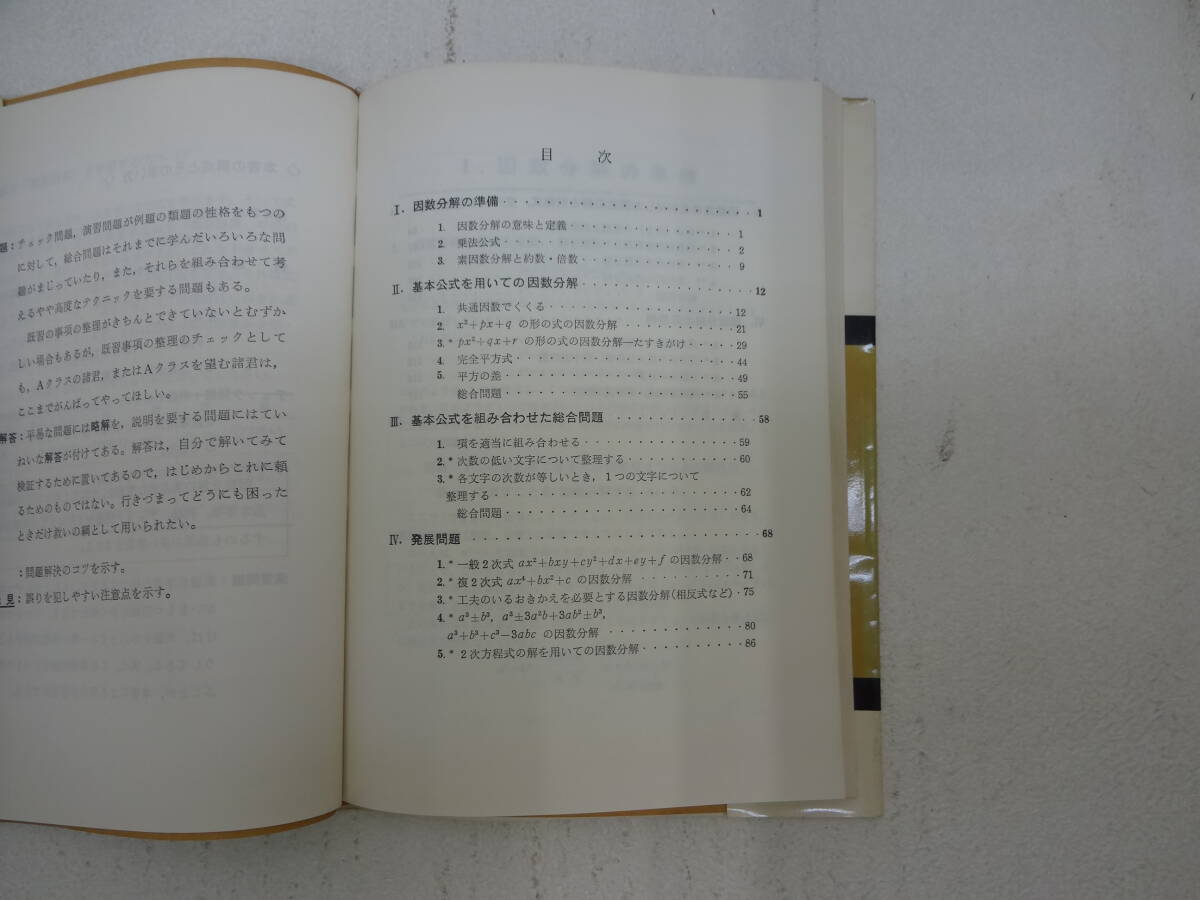 題：チェック問題，演習問題が例題の類題の性格をもつの
に対して，総合問題はそれまでに学んだいろいろな問
題がまじっていたり，また，それらを組み合わせて考
えるやや高度なテクニックを要する問題もある。
既習の事項の整理がきちんとできていないとむずか
しい場合もあるが，既習事項の整理のチェックとして
も，Aクラスの諸君，またはAクラスを望む諸君は，
ここまでがんばってやってほしい。
解答：平易な問題には略解を，説明を要する問題にはてい
ねいな解答が付けてある。解答は，自分で解いてみて
検証するために置いてあるので，はじめからこれに頼
るためのものではない。行きづまってどうにも困った
ときだけ救いの綱として用いられたい。
：問題解決のコツを示す。
見：誤りを犯しやすい注意点を示す。
目 次
Ⅰ. 因数分解の準備 1
1. 因数分解の意味と定義 1
2. 乗法公式 2
3. 素因数分解と約数・倍数 9
Ⅱ. 基本公式を用いての因数分解 12
1. 共通因数でくくる 12
2. x²+px+q の形の式の因数分解 21
3.* px²+qx+r の形の式の因数分解—たすきがけ 29
4. 完全平方式 44
5. 平方の差 49
総合問題 55
Ⅲ. 基本公式を組み合わせた総合問題 58
1. 項を適当に組み合わせる 59
2.* 次数の低い文字について整理する 60
3.* 各文字の次数が等しいとき，1つの文字について
整理する 62
総合問題 64
Ⅳ. 発展問題 68
1.* 一般2次式 ax²+bxy+cy²+dx+ey+f の因数分解 68
2.* 複2次式 ax⁴+bx²+c の因数分解 71
3.* 工夫のいるおきかえを必要とする因数分解(相反式など) 75
4.* a³±b³, a³±3a²b+3ab²±b³,
a³+b³+c³−3abc の因数分解 80
5.* 2次方程式の解を用いての因数分解 86